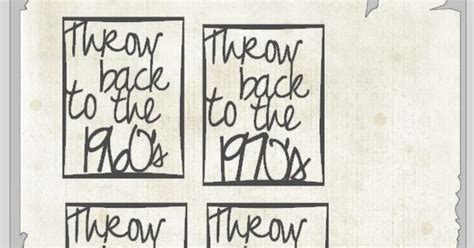 Throw
back
to the
1960's
Throw
back
to the
1970's
Throw
Throw